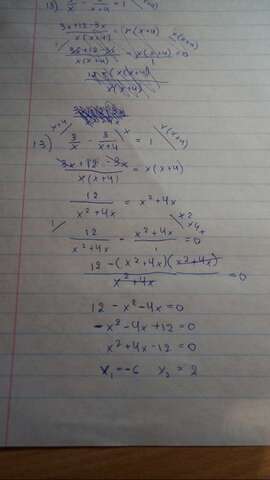 13) 3/x - 3/(x+4) = 1
(3x+12-3x)/(x(x+4)) = x(x+4)
(3x+12-3x)/(x(x+4)) - x(x+4)/1 = 0
13) 3/x - 3/(x+4) = 1
(3x+12-3x)/(x(x+4)) = x(x+4)
12/(x²+4x) = x²+4x
12/(x²+4x) - (x²+4x)/1 = 0
(12-(x²+4x)(x²+4x))/(x²+4x) = 0
12-x²-4x=0
-x²-4x+12=0
x²+4x-12=0
x₁=-6 x₂=2